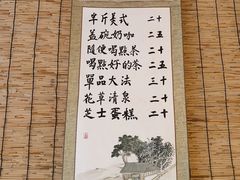 半斤美式 二十
蓋碗奶咖 二五
隨便喝點茶 二十
喝點好的茶 二十
單品大法 三十
花草清泉 二十
芝士蛋糕 二十